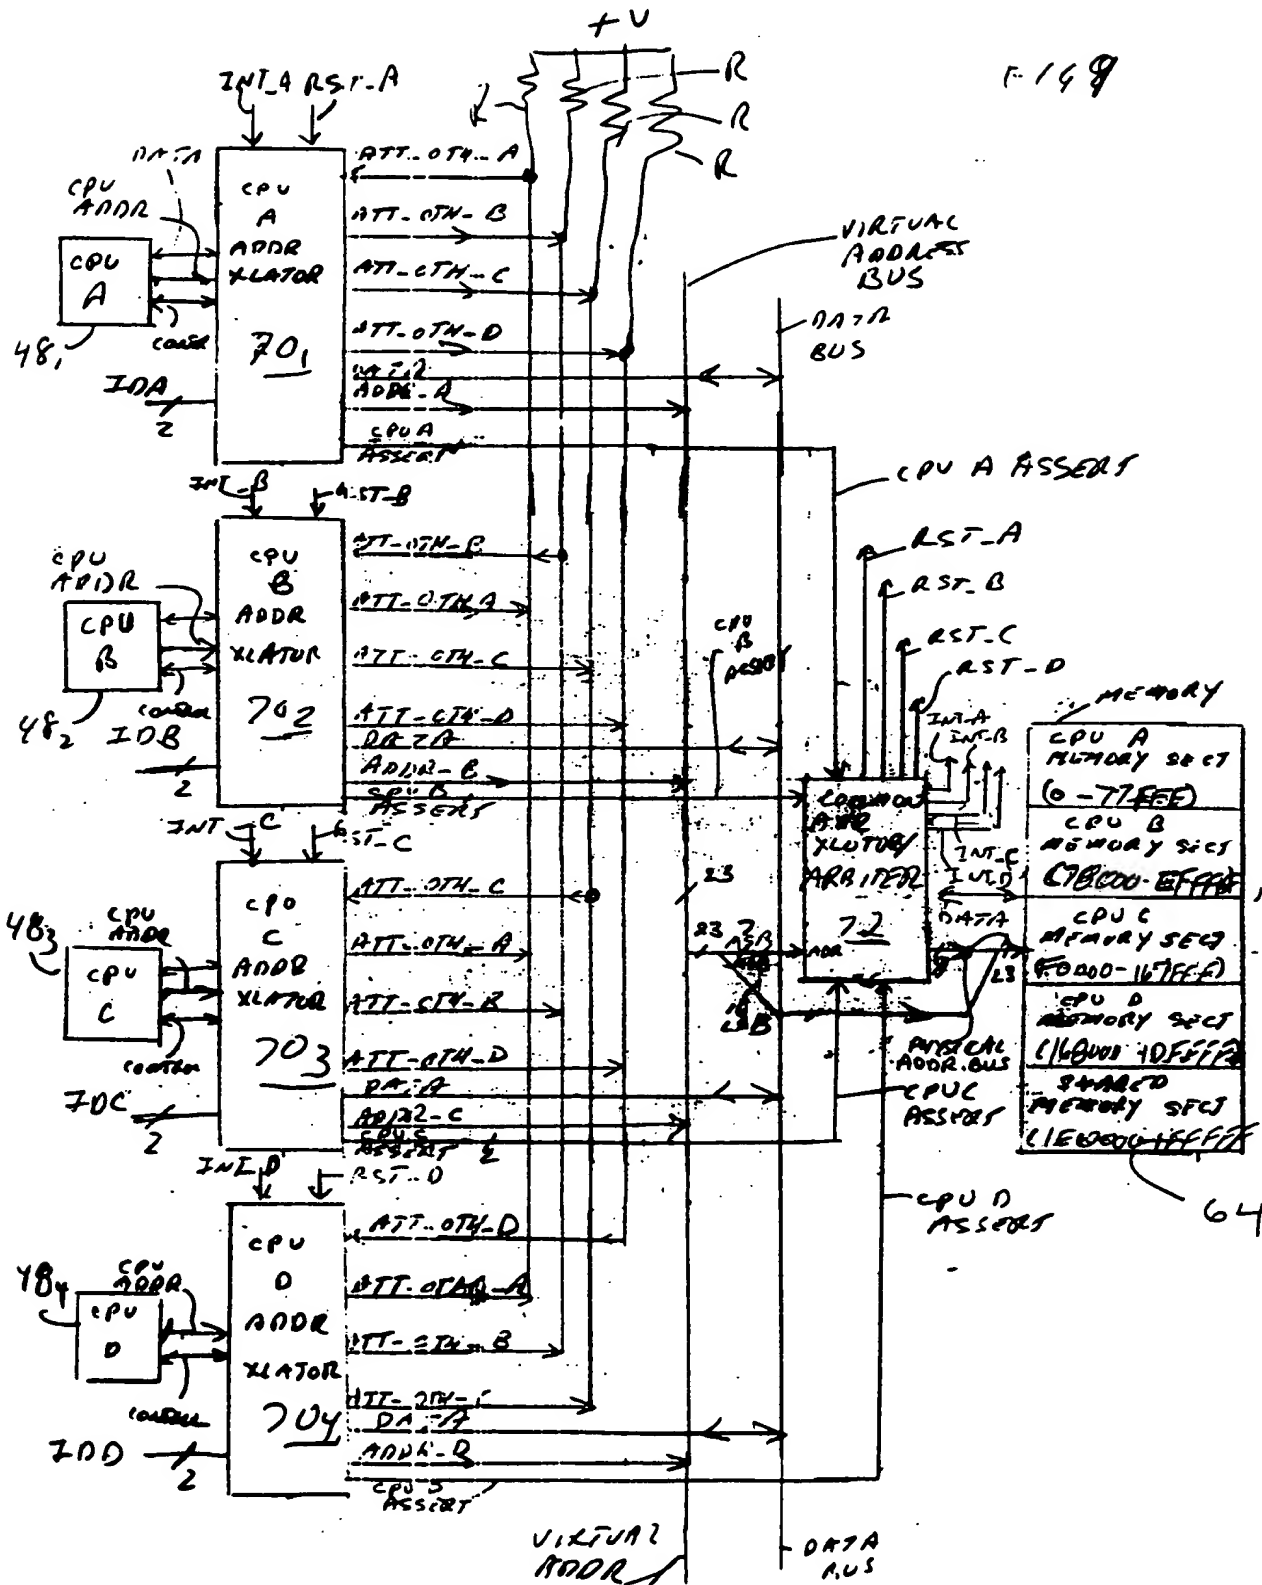 +V
FIG 9
INT_A RST_A
R
R
R
R
DATA
CPU
ADDR
CPU
A
CONTR
48₁
IDA
2
CPU
A
ADDR
XLATOR
70₁
ATT_OTH_A
ATT_OTH_B
ATT_OTH_C
ATT_OTH_D
DATA
ADDR_A
CPU A
ASSERT
VIRTUAL
ADDRESS
BUS
DATA
BUS
CPU A ASSERT
INT_B
RST_B
CPU
ADDR
CPU
B
CONTROL
48₂
IDB
2
CPU
B
ADDR
XLATOR
70₂
ATT_OTH_B
ATT_OTH_A
ATT_OTH_C
ATT_OTH_D
DATA
ADDR_B
CPU B
ASSERT
CPU
B
ASSERT
RST_A
RST_B
RST_C
RST_D
INT_A
INT_B
INT_C
INT_D
COMMON
ADDR
XLATOR/
ARBITER
72
ADR
DATA
23
23
7
MSB
16
LSB
23
PHYSICAL
ADDR. BUS
MEMORY
CPU A
MEMORY SECT
(0-77FFF)
CPU B
MEMORY SECT
(78000-EFFFF)
CPU C
MEMORY SECT
(F0000-167FFF)
CPU D
MEMORY SECT
(168000-1DFFFF)
SHARED
MEMORY SECT
(1E0000-1FFFFF)
64
INT_C
RST_C
CPU
ADDR
48₃
CPU
C
CONTROL
IDC
2
CPU
C
ADDR
XLATOR
70₃
ATT_OTH_C
ATT_OTH_A
ATT_OTH_B
ATT_OTH_D
DATA
ADDR-C
CPU C
ASSERT
CPU C
ASSERT
INT_D
RST_D
CPU
ADDR
48₄
CPU
D
CONTROL
IDD
2
CPU
D
ADDR
XLATOR
70₄
ATT_OTH_D
ATT_OTH_A
ATT_OTH_B
ATT_OTH_C
DATA
ADDR_D
ASSERT
CPU D
ASSERT
VIRTUAL
ADDR
DATA
BUS